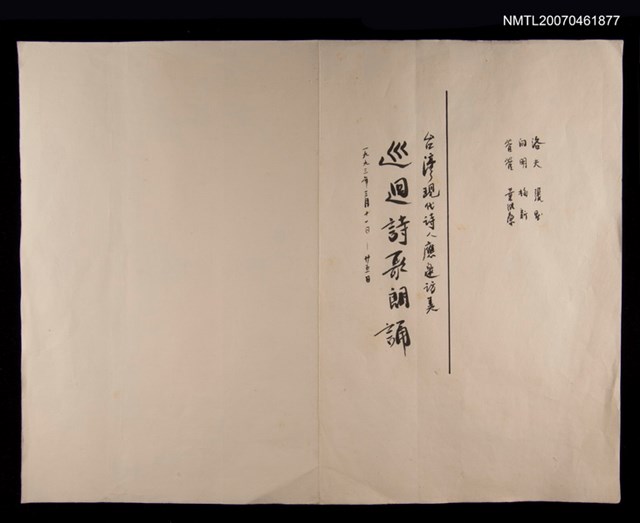 NMTL20070461877
洛夫 張默
向明 梅新
管管 葉維廉
台灣現代詩人應邀訪美
巡迴詩歌朗誦
一九九三年三月十一日－廿五日